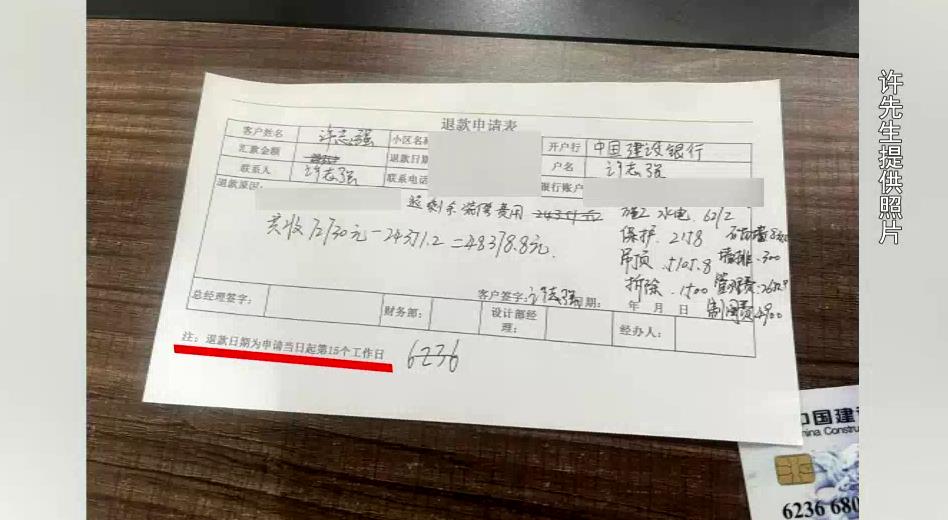 退款申请表
客户姓名 许志强 小区名称 开户行 中国建设银行
汇款金额 退款日期 户名 许志强
联系人 许志强 联系电话 银行账户
退款原因: 退剩余 费用 施工 水电. 6212
共收72730元-24351.2=48378.8元. 保护. 2158
吊顶. 5105.8 墙排. 300
拆除. 1500 管理费.
客户签字: 许志强 日期: 年 月 日 制图费4900
总经理签字: 财务部: 设计部经理: 经办人:
注: 退款日期为申请当日起第15个工作日 6236
许先生提供照片
中国建
China Constru
6236 680